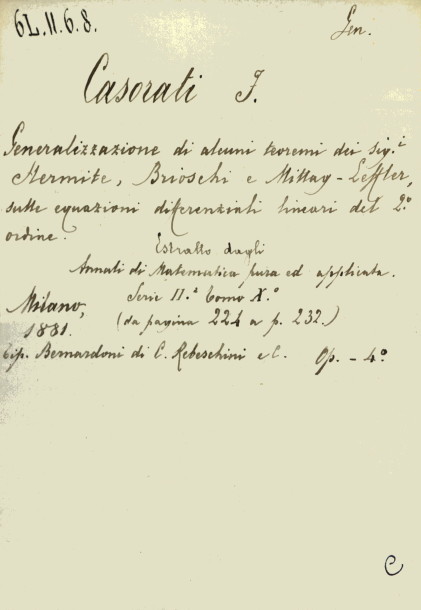 6L.11.6.8.
Gen.
Casorati F.
Generalizzazione di alcuni teoremi dei sig.i
Hermite, Brioschi e Mittag-Leffler,
sulle equazioni diferenziali lineari del 2.o
ordine.
Estratto dagli
Annali di Matematica pura ed applicata.
Serie II.a Tomo X.o
(da pagina 224 a p. 232.)
Milano,
1881.
Tip. Bernardoni di C. Rebeschini e C. Op. - 4.o
C